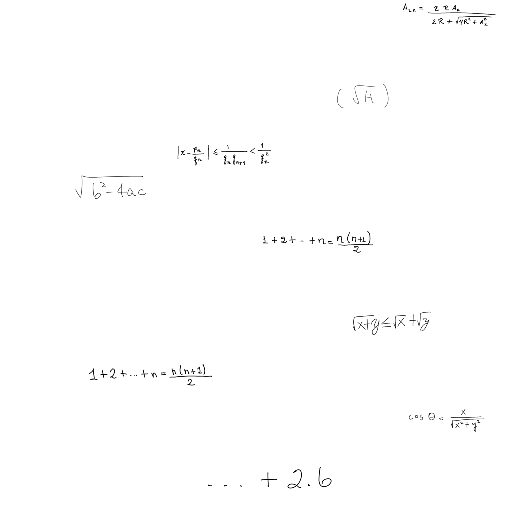 A₂ₙ = 2 R Aₙ / (2R + √(4R² + Aₙ²))
(√H)
|x - pₙ/qₙ| ≤ 1/(qₙqₙ₊₁) < 1/qₙ²
√(b² - 4ac)
1 + 2 + ·· + n = n(n+1)/2
√(x+y) ≤ √x + √y
1 + 2 + ... + n = n(n+1)/2
cos θ = x/√(x² + y²)
... + 2.6